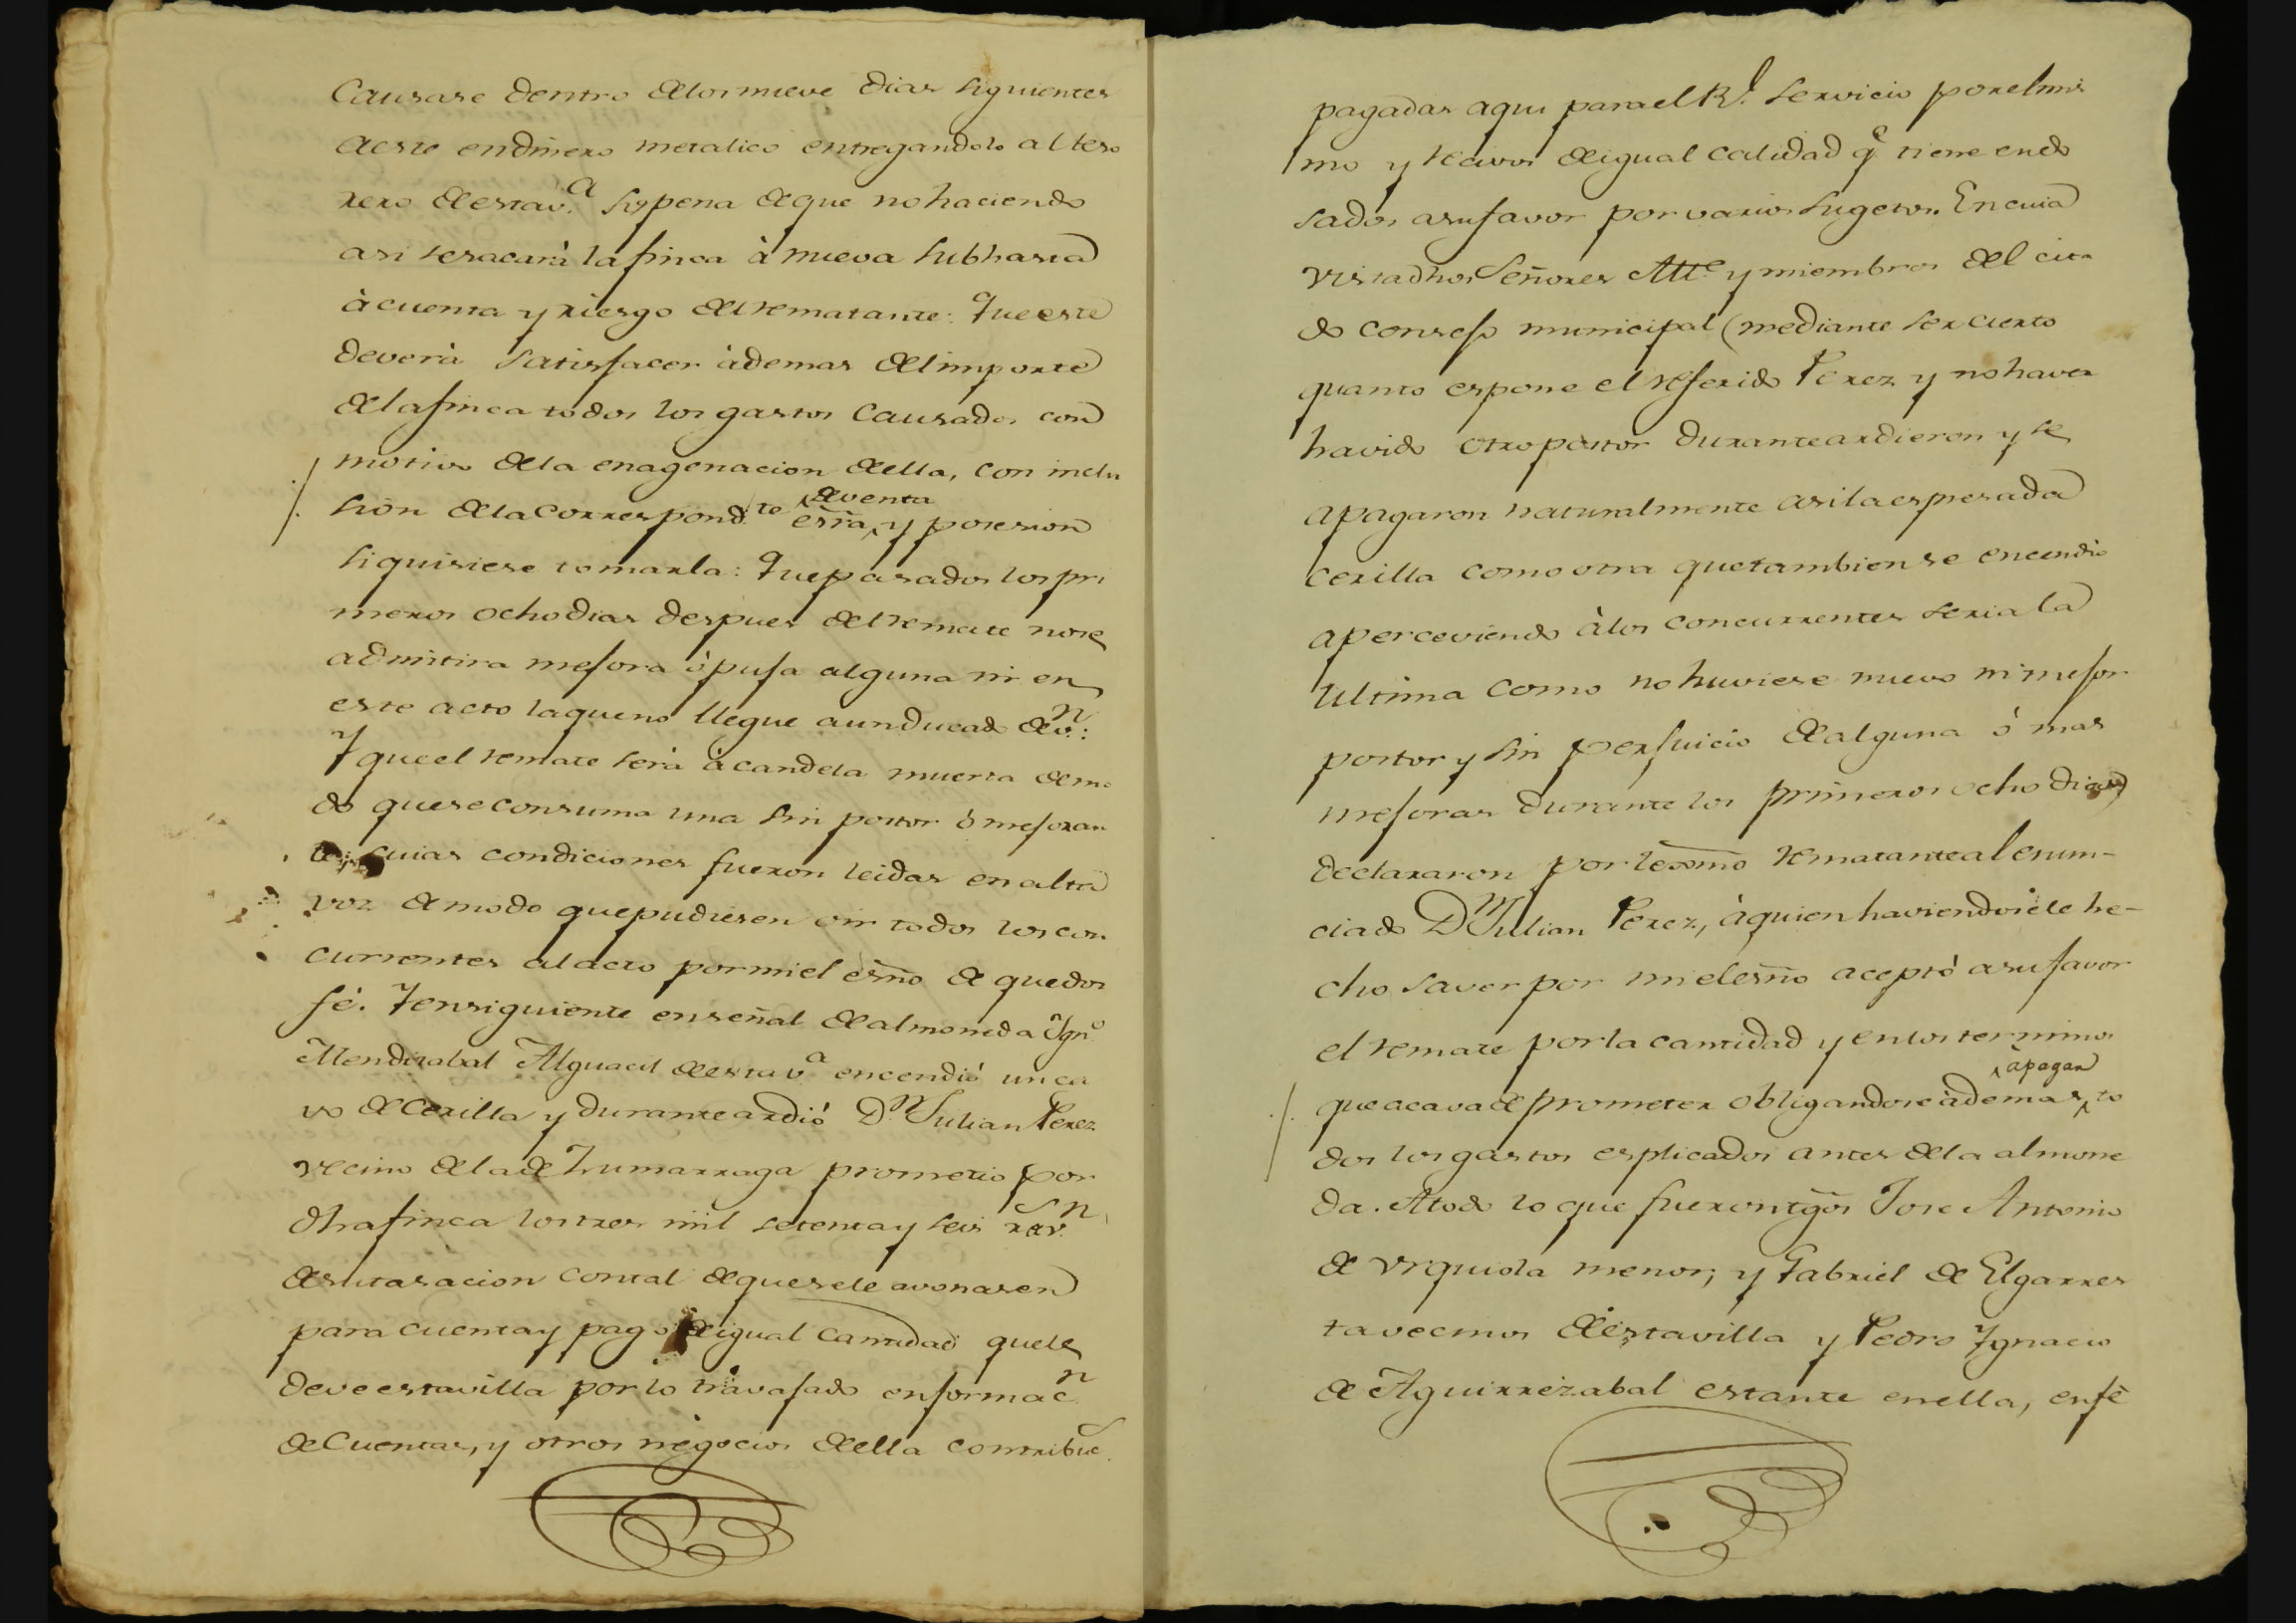 Causase dentro delos nueve dias siguientes
a este en dinero metalico entregandolo al teso
rero de esta v.a so pena de que no haciendo
asi se sacarà la finca à nueva subhasta
à cuenta y riesgo del rematante: Que este
deverà satisfacer àdemas del importe
de la finca todos los gastos causados con
motivo de la enagenacion de ella, con inclu
sion de la correspond.te esrra de venta y posesion
si quisiese tomarla: Que pasados los pri
meros ocho dias despues del remate no se
admitira mejora ò puja alguna ni en
este acto la que no llegue a un ducado de v.n:
Y que el remate serà à candela muerta de mo
do que se consuma una sin postor ò mejoran
te; cuias condiciones fueron leidas en alta
voz de modo que pudiesen oir todos los con
currentes al acto por mi el esño de que doi
fé. Y en siguiente en señal de almoneda Ygn.o
Mendizabal Alguacil de esta v.a encendió un ca
vo de cerilla y durante ardió D.n Julian Perez
vecino de la de Zumarraga prometio por
dha finca los tres mil setenta y seis r.s v.n
de su tasacion con tal de que se le avonasen
para cuenta y pago de igual cantidad que le
deve esta villa por lo travajado en formac.n
de cuentas, y otros negocios de ella contribuc.s
pagadas aqui para el R.l servicio por el mis
mo y recivos de igual calidad q.e tiene endo
sados a su favor por varios sugetos. En cuia
vista dhos Señores Alc.e y miembros del cita
do consejo municipal (mediante ser cierto
quanto espone el referido Perez y no haver
havido otro postor durante ardieron y se
apagaron naturalmente asi la espresada
cerilla como otra que tambien se encendio
aperceviendo à los concurrentes seria la
ultima como no huviese nuevo ni mejor
postor y sin perjuicio de alguna ò mas
mejoras durante los primeros ocho dias)
declararon por lexmo rematante al enun-
ciado D.n Julian Perez, à quien haviendosele he-
cho saver por mi el esño aceptó a su favor
el remate por la cantidad y en los terminos
que acava de prometer obligandose àdemas à pagar to
dos los gastos esplicados antes de la almone
da. A todo lo que fueron tgos Jose Antonio
de Urquiola menor, y Gabriel de Elgarres
ta vecinos de esta villa y Pedro Ygnacio
de Aguirrezabal estante en ella, en fé